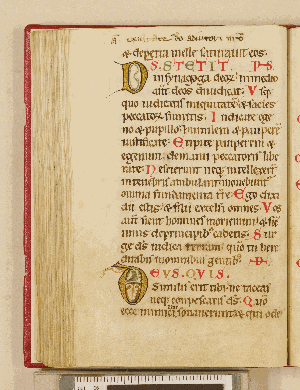 & de petra melle saturauit eos.
DS. STETIT. PS.
in synagoga deorum in medio
autem deos diiudicat. Vsq;
quo iudicatis iniquitatē & facies
peccatorū sumitis. Iudicate ege
no & pupillo humilem & pauperē
iustificate. Eripite pauperem &
egenum de manu peccatoris libe
rate. Nescierunt neq; intellexerunt
in tenebris ambulant mouebunt
omnia fundamenta terre. Ego dixi
dii estis & filii excelsi omnes. Vos
autem sicut homines moriemini & sic
unus de principibus cadetis. Sur
ge ds iudica terram quō tu here
ditabis in omnibus gentibus.
DEVS. QVIS.
similis erit tibi ne taceas
neq; compescaris ds. Quō
ecce inimici tui sonauerunt & qui ode